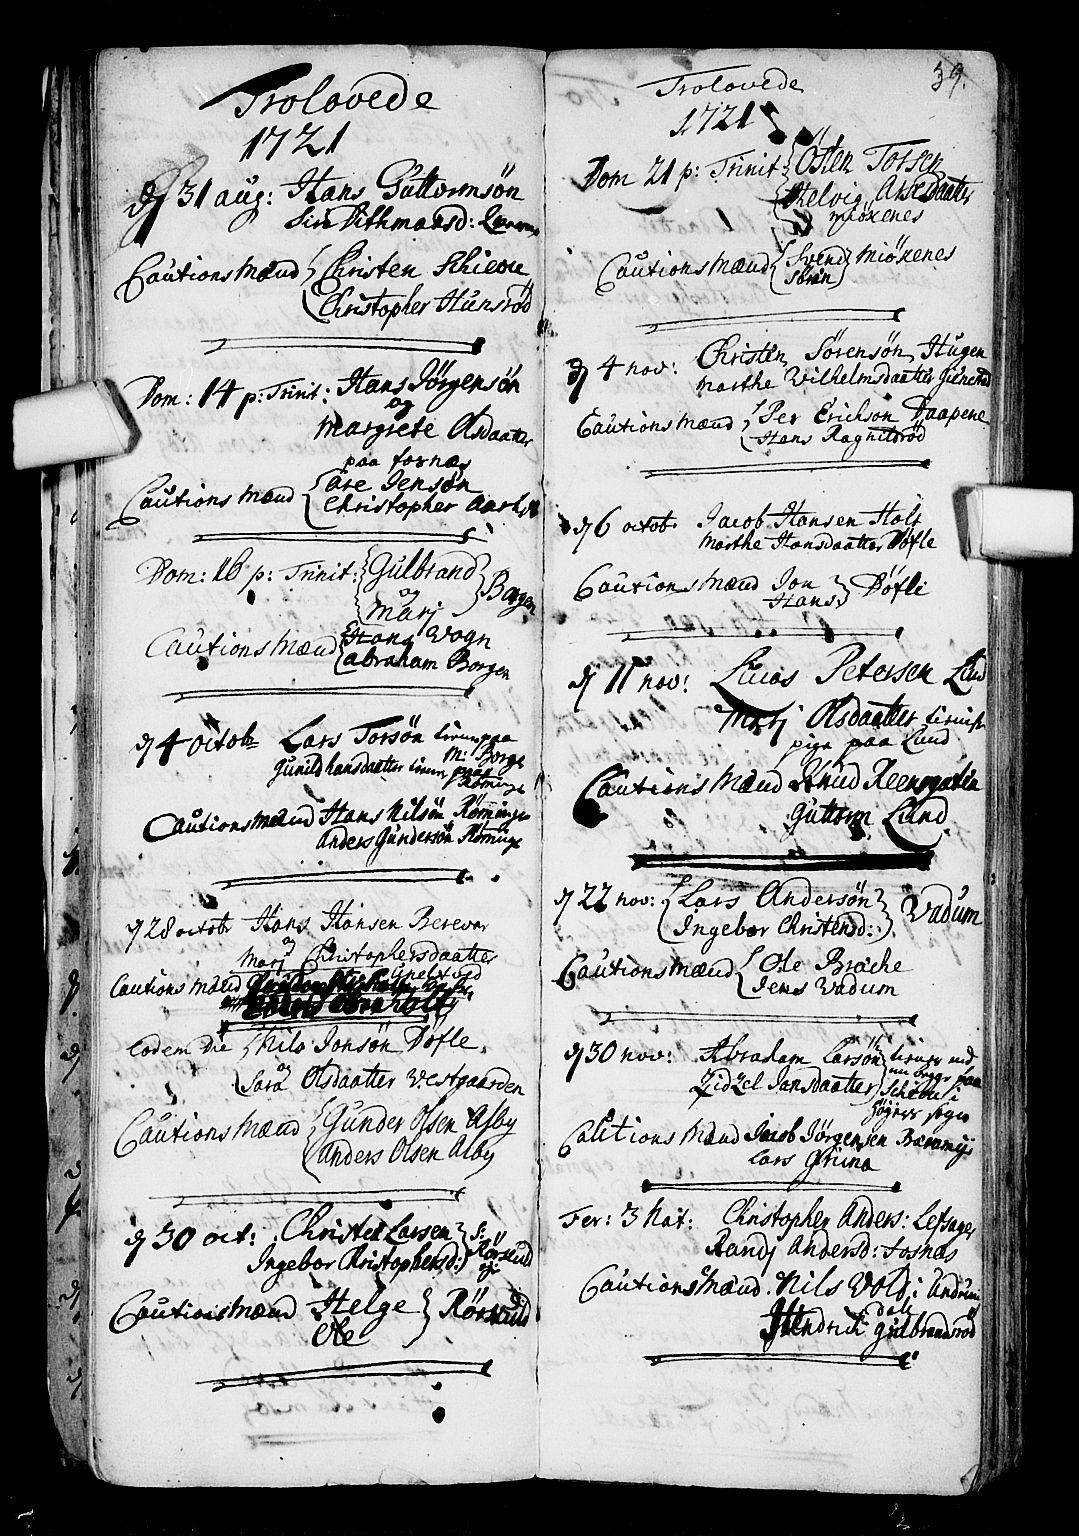 Trolovede
1721
d 31 aug: Hans Guttormsøn
Siri Dithmarsd:
Cautions Mænd Christen Schieve
Christopher Hunsrød
Dom: 14 p: Trinit: Hans Jørgensøn
og
Margrete Olsdaatter
paa fornæs
Cautions Mænd Are Jensøn
Christopher
Dom: 16 p: Trinit: Gulbrand
og Borgen
Marj
Cautions Mænd Hans Vogn
Abraham Borgen
d 4 octob Lars Torsøn paa
M: Borge
Gunild hansdaatter
Cautionsmænd Hans Nilsøn
Anders Gundersøn
d 28 octob Hans Hansen Berevar
og
Marj Christophersdaatter
Cautions Mænd
Eodem Die Nils Jonsøn Døfle
og
Sara Olsdaatter Vestgaarden
Cautions Mænd Gunder Olsen Asby
Anders Olsen Asby
d 30 oct: Christen Larsen
Ingebor Christophersd:
Cautions Mænd Helge Rørsuld
Ole
39.
Trolovede
1721
Dom 21 p: Trinit Østen Torsen
Helvig Aresdaatter
Miøxenes
Cautions Mænd Svend Miøxenes
Søren
d 4 nov: Christen Sørensøn Hugen
Marthe Wilhelmsdaatter
Cautions Mænd Per Erichson Daapene
Hans Ragnilsrød
d 6 octob Jacob Hansen Holt
Marthe Hansdaatter Døfle
Cautions Mænd Jon Døfle
Hans
d 11 nov: Lucas Petersen Lund
Marj Olsdaatter
pige paa Lund
Cautions Mænd Knud
Guttorm Lund
d 22 nov: Lars Andersøn Vadum
Ingebor Christensd:
Cautions Mænd Ole Bräche
Jens Vadum
d 30 nov: Abraham Larsøn
Zidzel Jansdaatter
Cautions Mænd Jacob Jørgensen
Lars Gruna
Fer: 3 Nat: Christopher Anders:
Randj Andersd: Fosnæs
Cautions Mænd. Nils Vold i
dal
Hendrich Gulbrandsrød